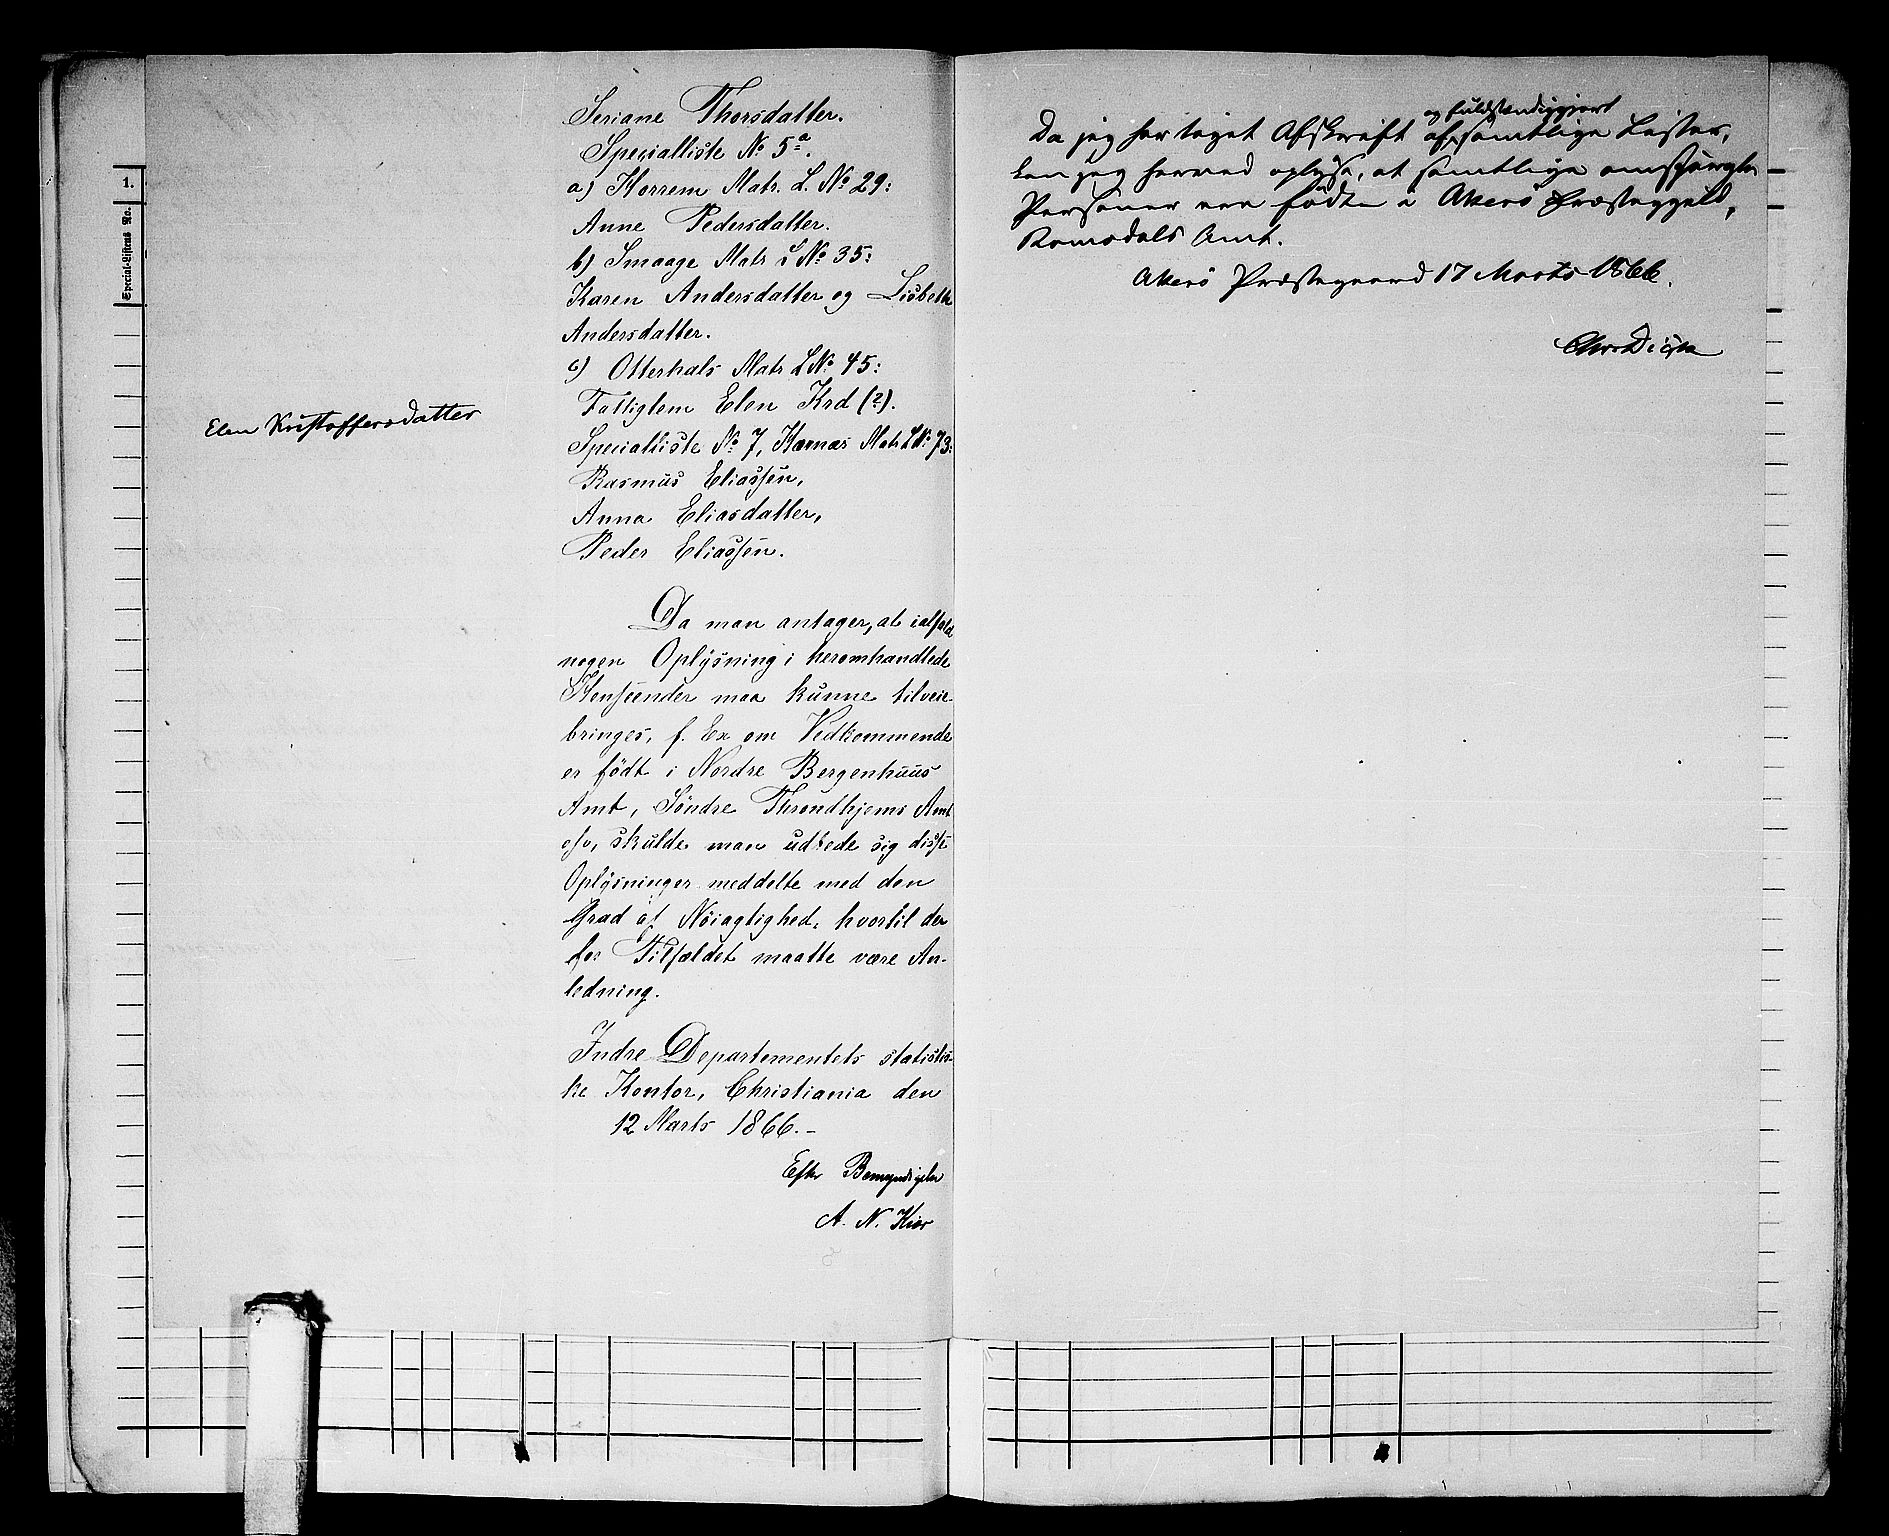 1.
Special-Listens No.
Seriane Thorsdatter.
Specialliste No 5a.
a) Horrem Matr. L. No 29:
Anne Pedersdatter.
b) Smaage Matr L No 35:
Karen Andersdatter og Lisbeth
Andersdatter.
c) Otterhals Matr L No 45:
Fattiglem Elen Krd (?).
Elen Kristoffersdatter
Specialliste No 7, Harnæs Matr L No 73:
Rasmus Eliassen,
Anna Eliasdatter,
Peder Eliassen.
Da man antager, at ialfald
nogen Oplysning i heromhandlede
Henseender maa kunne tilveie-
bringes, f. Ex om Vedkommende
er født i Nordre Bergenhuus
Amt, Søndre Throndhjems Amt
osv, skulde man udbede sig disse
Oplysninger meddelte med den
Grad af Nøiagtighed, hvortil der
for Tilfældet maatte være An-
ledning.
Indre Departementets statisti-
ke Kontor, Christiania den
12 Marts 1866.-
Efter Bemyndigelse
A. N. Kiær
og fuldstændiggjort
Da jeg har taget Afskrift af samtlige Lister,
kan jeg herved oplyse, at samtlige omspurgte
Personer ere fødte i Akerø Præstegjeld,
Romsdals Amt.
Akerø Præstegaard 17 Marts 1866.